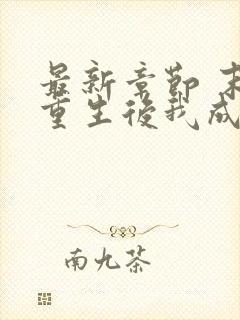 最新章節 末
重生後我成
南九茶